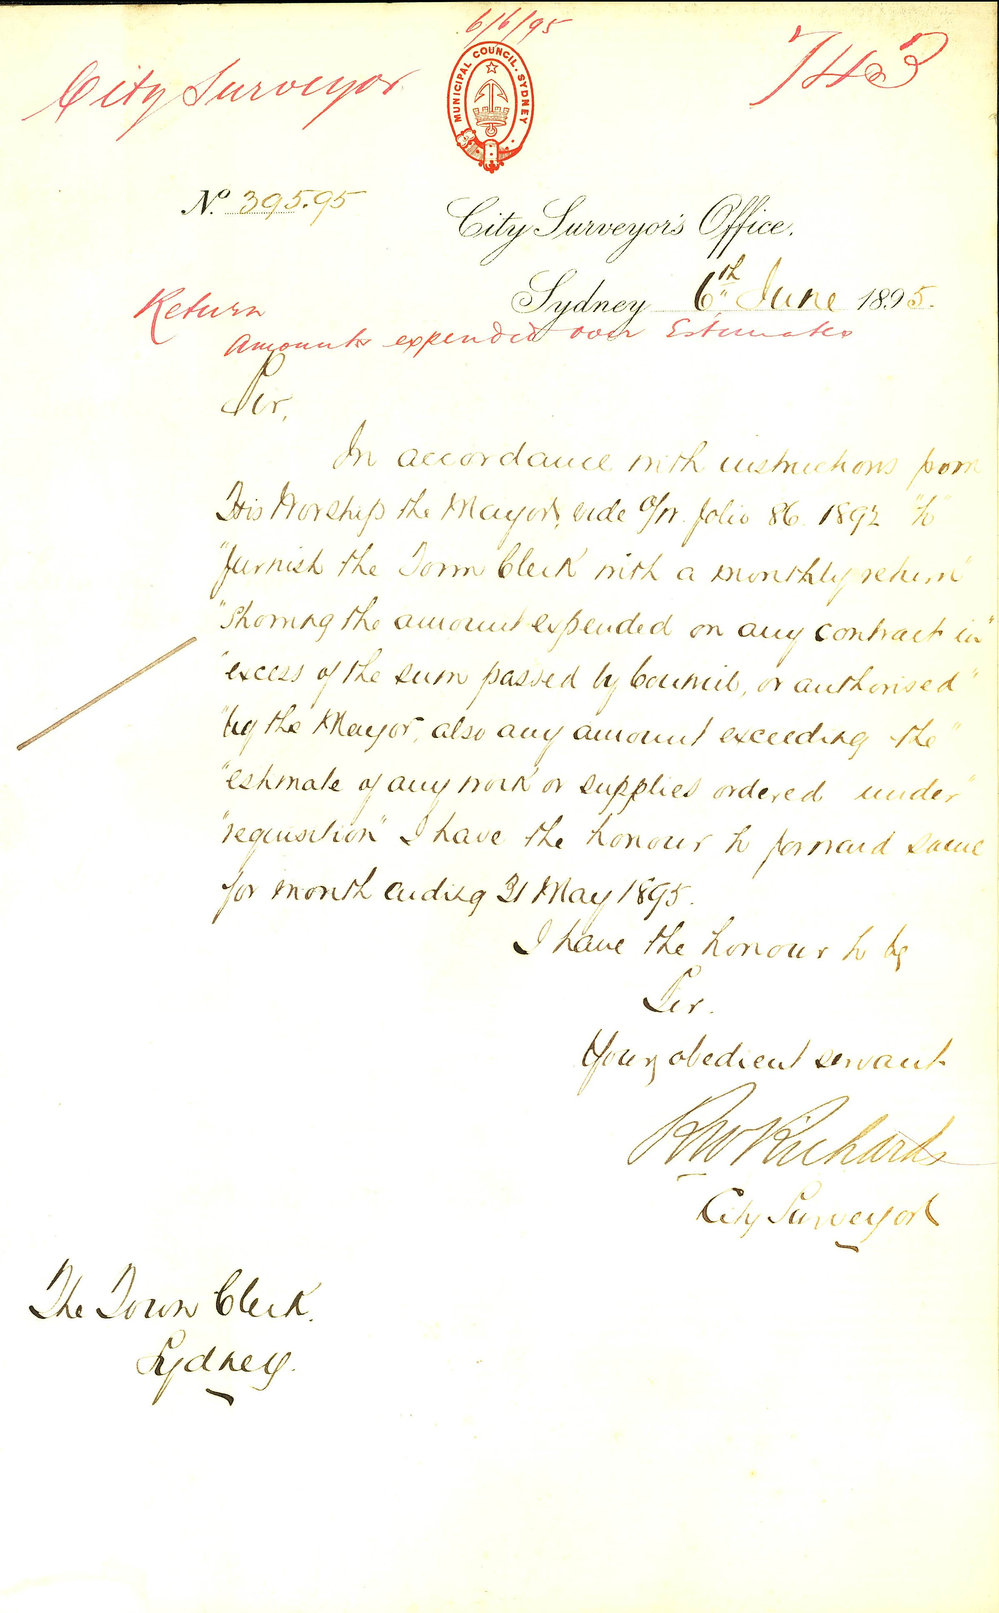 6/6/95
City Surveyor
743
MUNICIPAL COUNCIL. SYDNEY
No. 395.95
City Surveyor's Office.
Sydney 6th June 1895.
Return
Amounts expended over Estimates
Sir,
In accordance with instructions from
His Worship the Mayor, vide folio 86. 1892 "to"
"furnish the Town Clerk with a monthly return"
"showing the amount expended on any contract in"
"excess of the sum passed by Council, or authorised"
"by the Mayor, also any amount exceeding the"
"estimate of any work or supplies ordered under"
"requisition" I have the honour to forward same
for month ending 31 May 1895.
I have the honour to be
Sir.
Your obedient servant
RW Richards
City Surveyor
The Town Clerk.
Sydney.